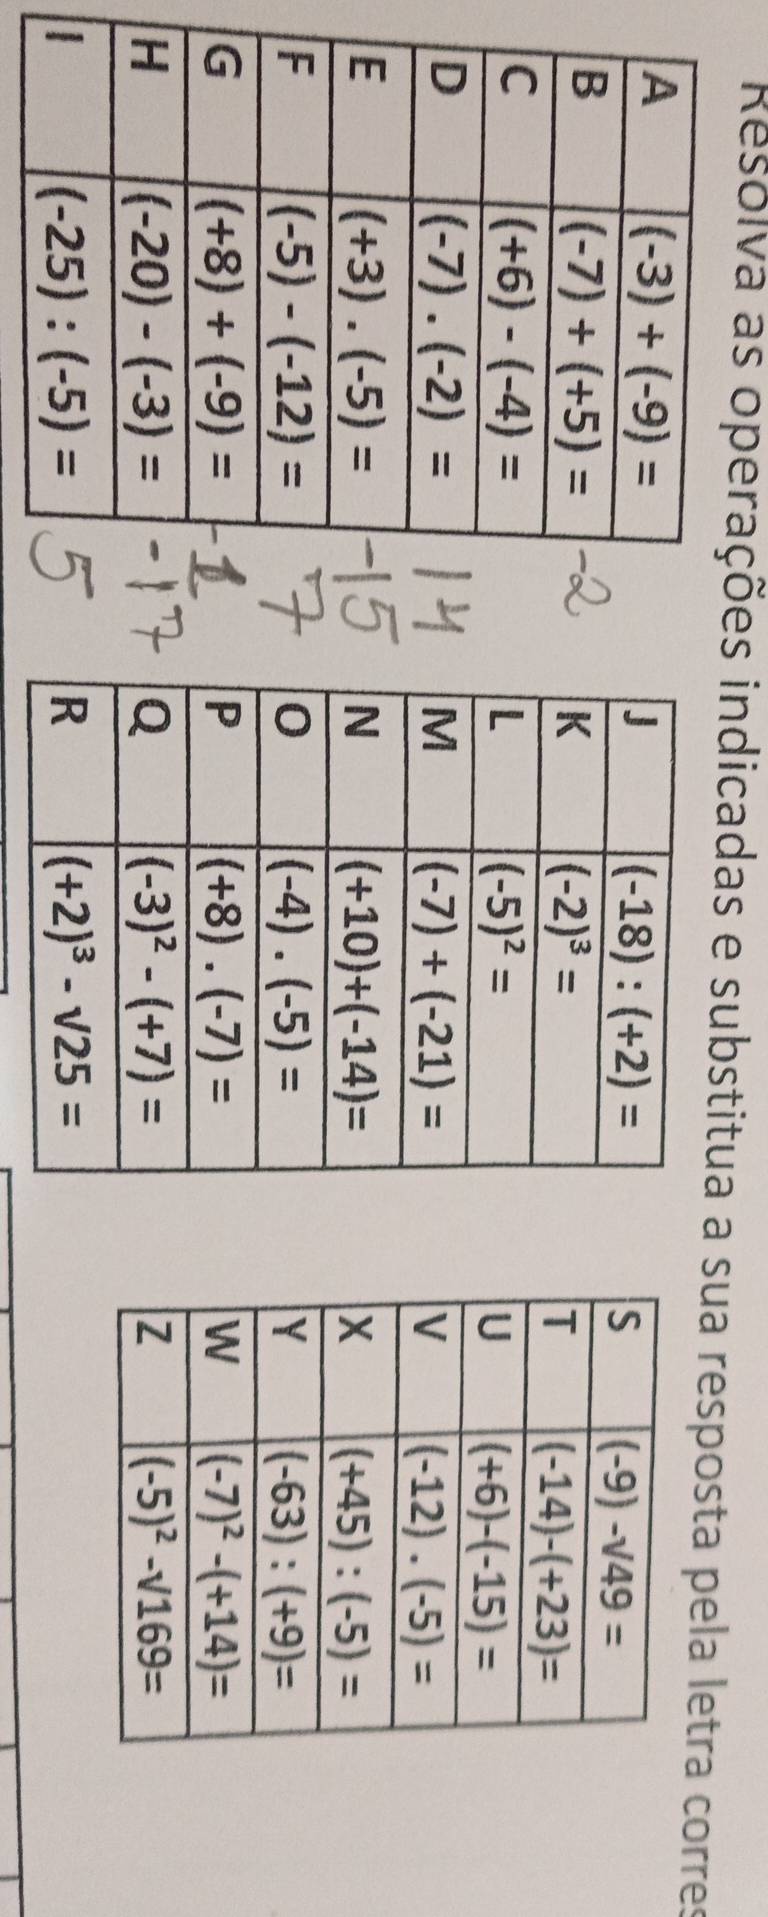 Resolva as operações indicadas e substitua a sua resposta pela letra corres
A (-3) + (-9) =
B (-7) + (+5) = -2
C (+6) - (-4) =
D (-7) . (-2) = 14
E (+3) . (-5) = -15
F (-5) - (-12) = 7
G (+8) + (-9) = -1
H (-20) - (-3) = -17
I (-25) : (-5) = 5
J (-18) : (+2) =
K (-2)³ =
L (-5)² =
M (-7) + (-21) =
N (+10)+(-14)=
O (-4) . (-5) =
P (+8) . (-7) =
Q (-3)² - (+7) =
R (+2)³ - √25 =
S (-9) -√49 =
T (-14)-(+23)=
U (+6)-(-15) =
V (-12) . (-5) =
X (+45) : (-5) =
Y (-63) : (+9)=
W (-7)² -(+14)=
Z (-5)² -√169=